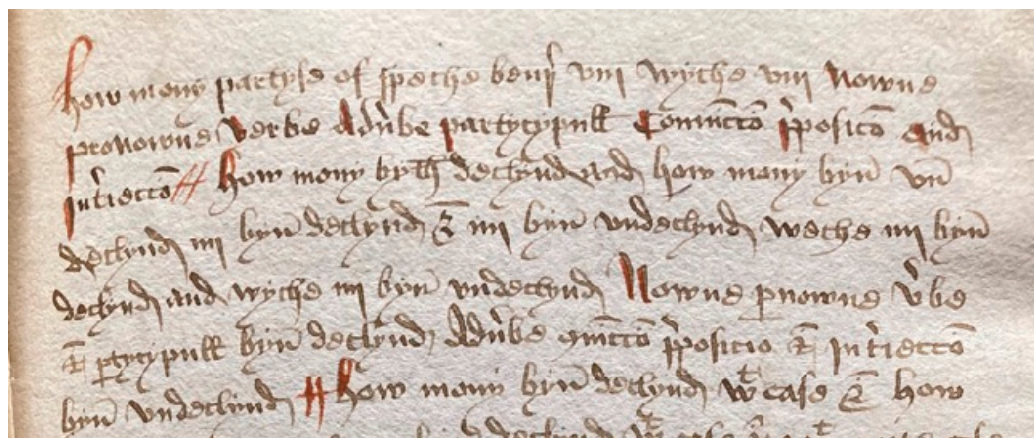 How mony partyse of speche benr̄ viii wyche viii Nowne
pronowne verbe Adv̄be partycypull Coniūccō p̄posicō and
int̄ieccō How mony byth declynd and how mony byn̄ vn
declynd iiii byn̄ declynd & iiii byn̄ vndeclynd weche iiii byn̄
declynd and wyche iiii byn̄ vndeclynd Nowne ꝑnowne v̄be
& ꝑtycypull byn̄ declynd Adv̄be ꝯiūccō p̄posicio & int̄ieccō
byn̄ vndeclynd How mony byn̄ declynd wᵗ case & how